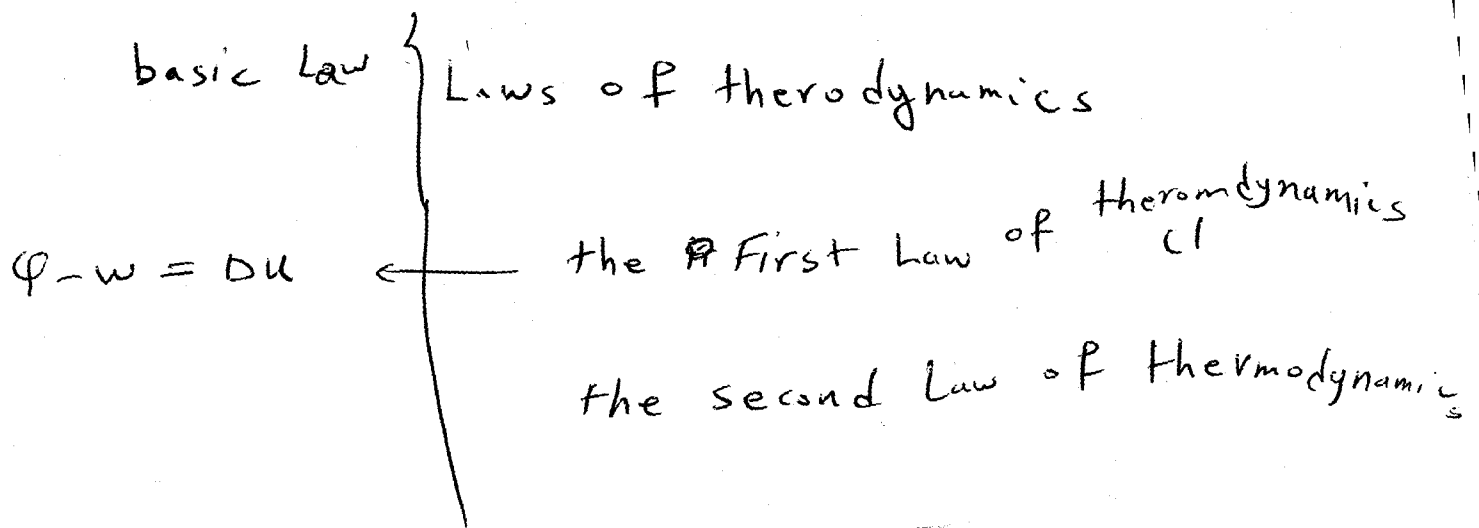 basic Law
Laws of therodynamics
the First Law of theromdynamics
φ-w = DU
the second Law of thermodynamics